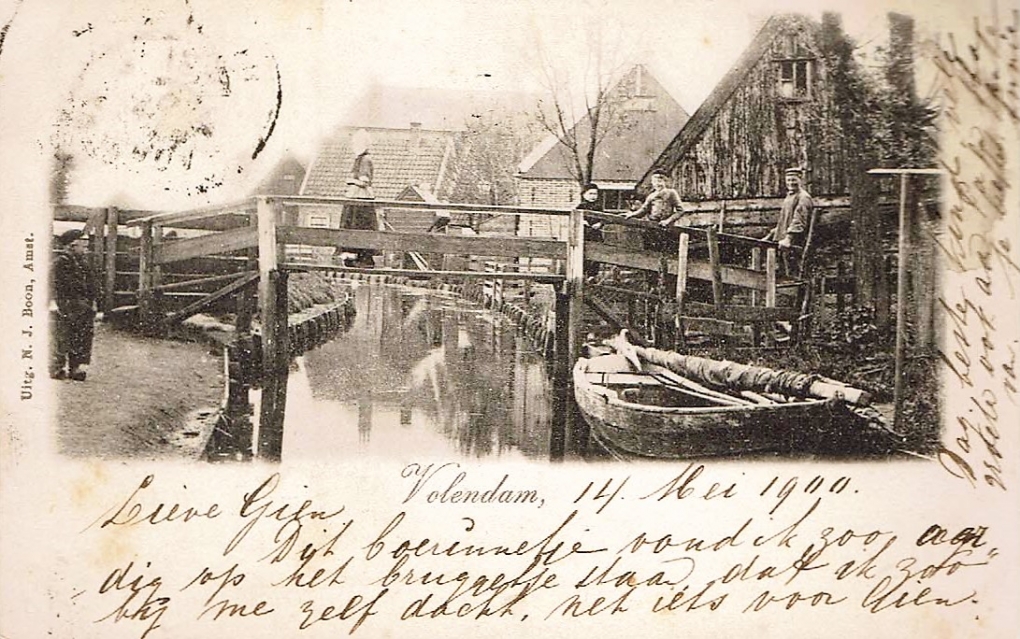 Uitg. N. J. Boon, Amst.
Volendam, 14. Mei 1900.
Lieve Gien
Dit boerinnetje vond ik zoo aar
dig op het bruggetje staan, dat ik zoo
bij me zelf dacht, net iets voor Gien.
Dag beste
ook